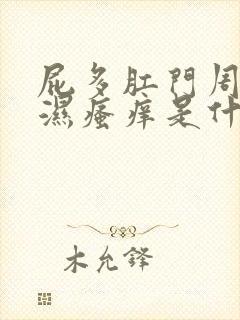 屁多肛門周
濕瘙痒是什
木允鋒